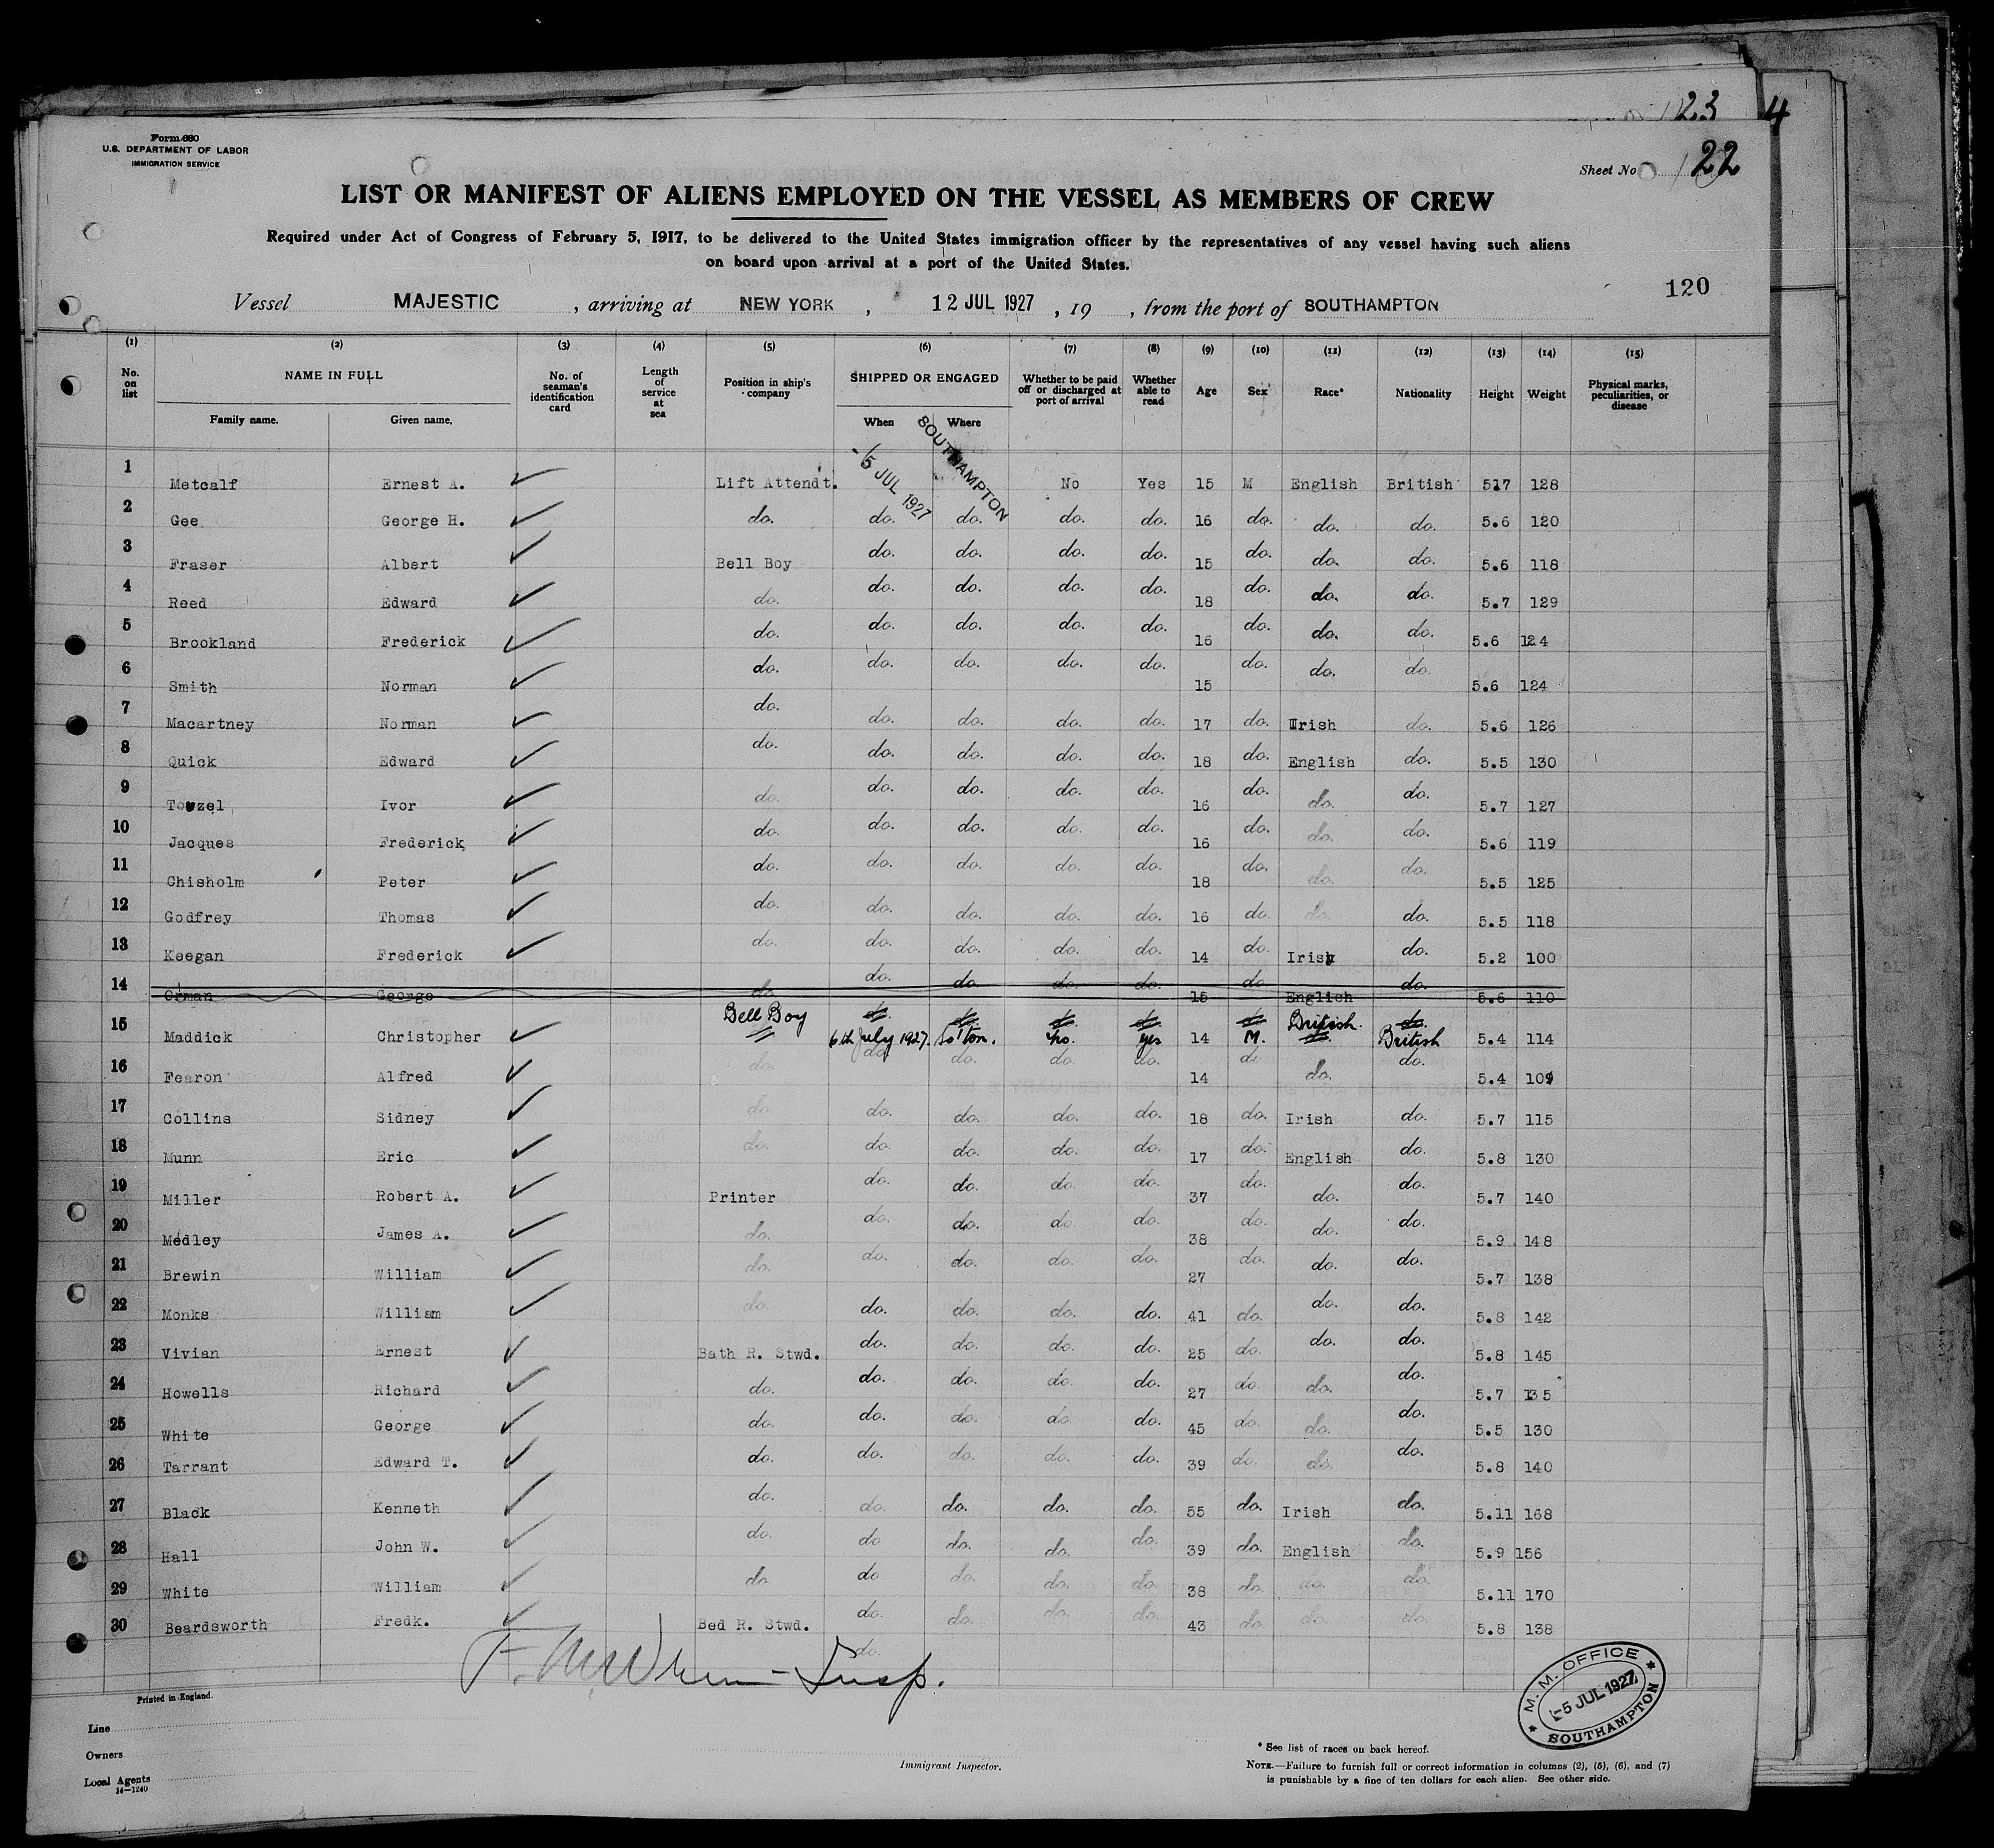 23
4
Form 680
U.S. DEPARTMENT OF LABOR
IMMIGRATION SERVICE
Sheet No. 22
LIST OR MANIFEST OF ALIENS EMPLOYED ON THE VESSEL AS MEMBERS OF CREW
Required under Act of Congress of February 5, 1917, to be delivered to the United States immigration officer by the representatives of any vessel having such aliens
on board upon arrival at a port of the United States.
120
Vessel MAJESTIC, arriving at NEW YORK, 12 JUL 1927, 19 , from the port of SOUTHAMPTON
(1) (2) (3) (4) (5) (6) (7) (8) (9) (10) (11) (12) (13) (14) (15)
No. on list NAME IN FULL Family name. Given name. No. of seaman's identification card Length of service at sea Position in ship's company SHIPPED OR ENGAGED When Where Whether to be paid off or discharged at port of arrival Whether able to read Age Sex Race* Nationality Height Weight Physical marks, peculiarities, or disease
1 Metcalf Ernest A. ✓ Lift Attendt. 5 JUL 1927 SOUTHAMPTON No Yes 15 M English British 517 128
2 Gee George H. ✓ do. do. do. do. do. 16 do. do. do. 5.6 120
3 Fraser Albert ✓ Bell Boy do. do. do. do. 15 do. do. do. 5.6 118
4 Reed Edward ✓ do. do. do. do. do. 18 do. do. do. 5.7 129
5 Brookland Frederick ✓ do. do. do. do. do. 16 do. do. do. 5.6 124
6 Smith Norman ✓ do. do. do. do. do. 15 do. do. do. 5.6 124
7 Macartney Norman ✓ do. do. do. do. do. 17 do. Irish do. 5.6 126
8 Quick Edward ✓ do. do. do. do. do. 18 do. English do. 5.5 130
9 Touzel Ivor ✓ do. do. do. do. do. 16 do. do. do. 5.7 127
10 Jacques Frederick ✓ do. do. do. do. do. 16 do. do. do. 5.6 119
11 Chisholm Peter ✓ do. do. do. do. do. 18 do. do. do. 5.5 125
12 Godfrey Thomas ✓ do. do. do. do. do. 16 do. do. do. 5.5 118
13 Keegan Frederick ✓ do. do. do. do. do. 14 do. Irish do. 5.2 100
14 Orman George do. do. do. do. do. 15 do. English do. 5.6 110
15 Maddick Christopher ✓ Bell Boy 6th July 1927. So'ton. No. yes 14 M. British British 5.4 114
16 Fearon Alfred ✓ do. do. do. do. do. 14 do. do. do. 5.4 109
17 Collins Sidney ✓ do. do. do. do. do. 18 do. Irish do. 5.7 115
18 Munn Eric ✓ do. do. do. do. do. 17 do. English do. 5.8 130
19 Miller Robert A. ✓ Printer do. do. do. do. 37 do. do. do. 5.7 140
20 Medley James A. ✓ do. do. do. do. do. 38 do. do. do. 5.9 148
21 Brewin William ✓ do. do. do. do. do. 27 do. do. do. 5.7 138
22 Monks William ✓ do. do. do. do. do. 41 do. do. do. 5.8 142
23 Vivian Ernest ✓ Bath R. Stwd. do. do. do. do. 25 do. do. do. 5.8 145
24 Howells Richard ✓ do. do. do. do. do. 27 do. do. do. 5.7 135
25 White George ✓ do. do. do. do. do. 45 do. do. do. 5.5 130
26 Tarrant Edward T. ✓ do. do. do. do. do. 39 do. do. do. 5.8 140
27 Black Kenneth ✓ do. do. do. do. do. 55 do. Irish do. 5.11 168
28 Hall John W. ✓ do. do do. do. do. 39 do. English do. 5.9 156
29 White William ✓ do do do. do. do. 38 do. do. do. 5.11 170
30 Beardsworth Fredk. ✓ Bed R. Stwd. do. do. do. do. 43 do. do. do. 5.8 138
do.
Insp.
Printed in England.
M. M. OFFICE
5 JUL 1927
SOUTHAMPTON
Line
Owners
Local Agents
14-1240
Immigrant Inspector.
* See list of races on back hereof.
NOTE.—Failure to furnish full or correct information in columns (2), (5), (6), and (7)
is punishable by a fine of ten dollars for each alien. See other side.